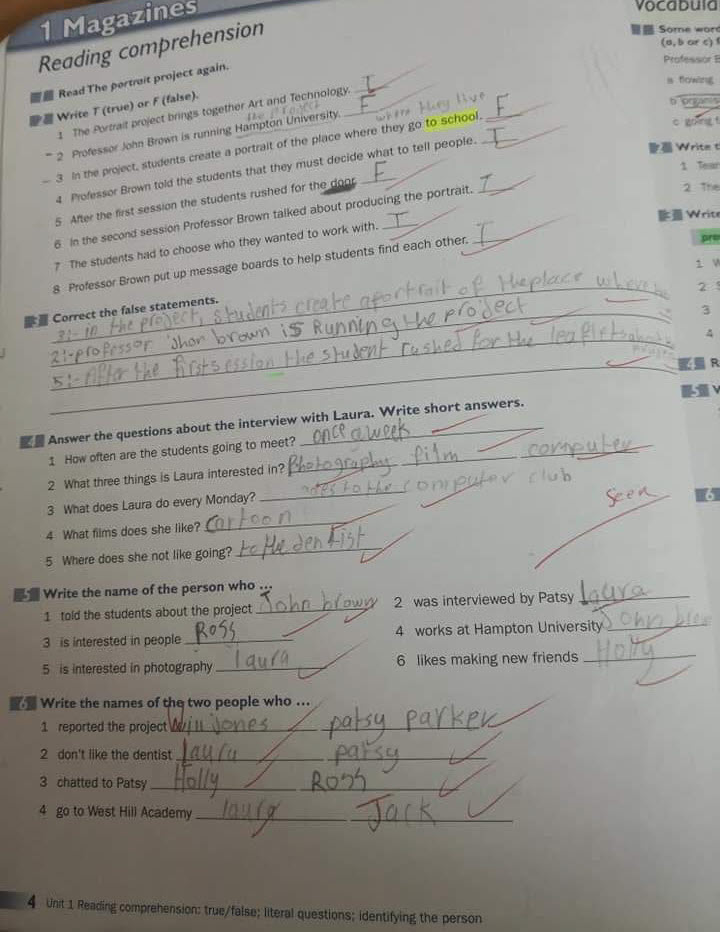 1 Magazines
Reading comprehension
Read The portrait project again.
2 Write T (true) or F (false).
1 The Portrait project brings together Art and Technology. T
the project
2 Professor John Brown is running Hampton University. F
where they live
3 In the project, students create a portrait of the place where they go to school. F
4 Professor Brown told the students that they must decide what to tell people. T
5 After the first session the students rushed for the door. F
6 In the second session Professor Brown talked about producing the portrait. T
7 The students had to choose who they wanted to work with. T
8 Professor Brown put up message boards to help students find each other. T
3 Correct the false statements.
3:- in the project, students create a portrait of the place where
2:- professor John brown is Running the project
5:- After the first session the student rushed for the leaflets about
4 Answer the questions about the interview with Laura. Write short answers.
1 How often are the students going to meet? once a week
2 What three things is Laura interested in? Photography film computer
3 What does Laura do every Monday? goes to the computer club
4 What films does she like? Cartoon
5 Where does she not like going? to the dentist
Seen
5 Write the name of the person who ...
1 told the students about the project John brown
2 was interviewed by Patsy laura
3 is interested in people Ross
4 works at Hampton University John
5 is interested in photography laura
6 likes making new friends Holly
6 Write the names of the two people who ...
1 reported the project Will Jones patsy parker
2 don't like the dentist laura patsy
3 chatted to Patsy Holly Ross
4 go to West Hill Academy laura Jack
4 Unit 1 Reading comprehension: true/false; literal questions; identifying the person
Some word
(a, b or c)
Professor B
a flowing
c going
2 Write t
1 Tear
2 The
3 Write
pre
1
2
3
4
4 R
5
6